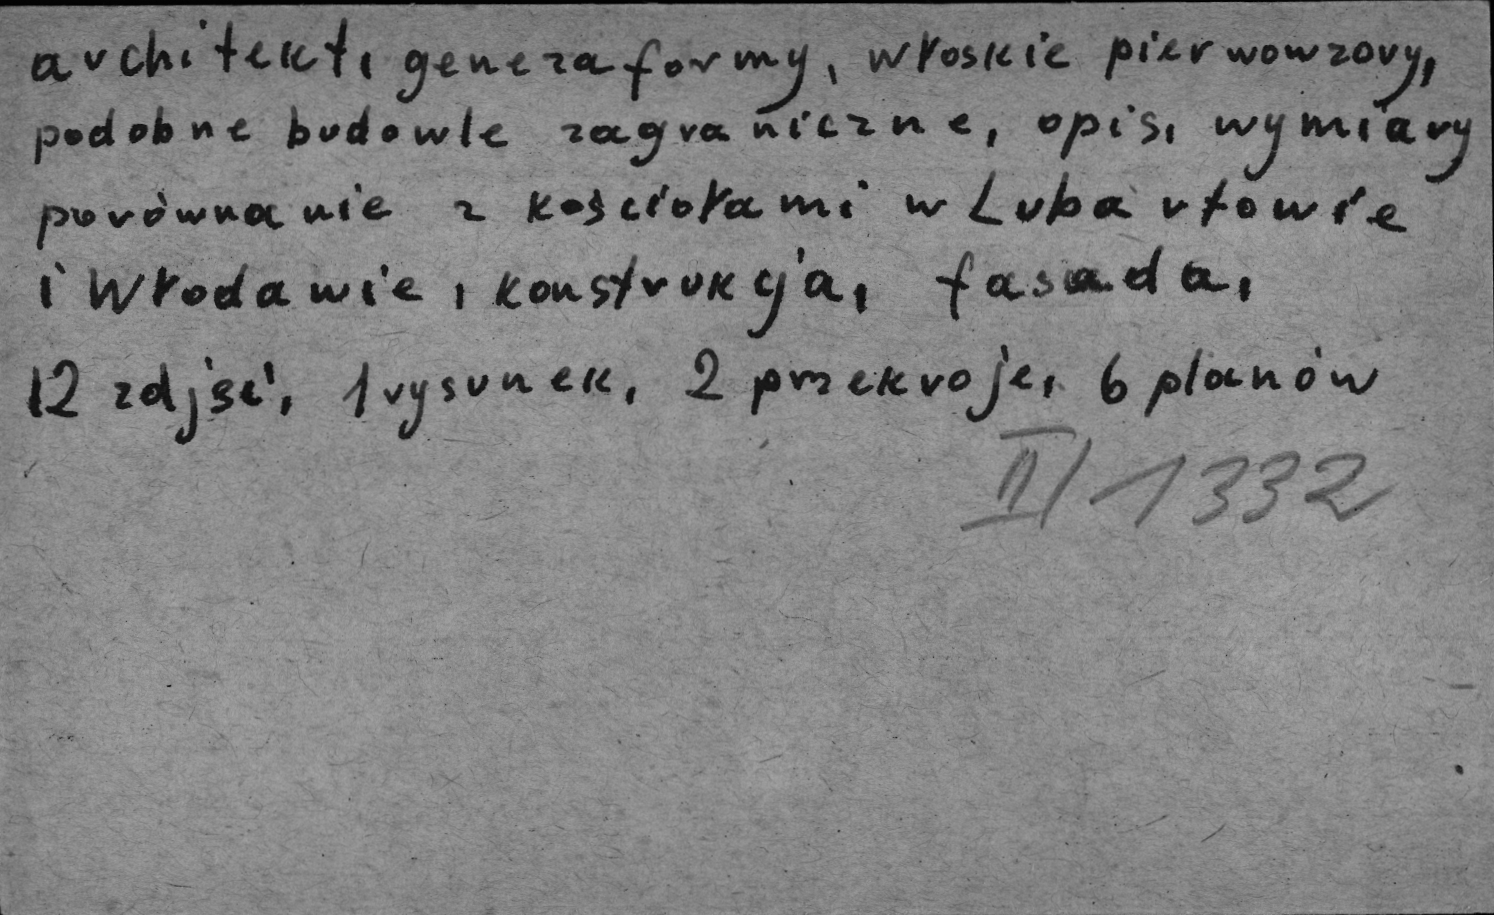 architekt, geneza formy, włoskie pierwowzory,
podobne budowle zagraniczne, opis, wymiary
porównanie z kościołami w Lubartowie
i Włodawie, konstrukcja, fasada,
12 zdjęć, 1 rysunek, 2 przekroje, 6 planów
II/1332